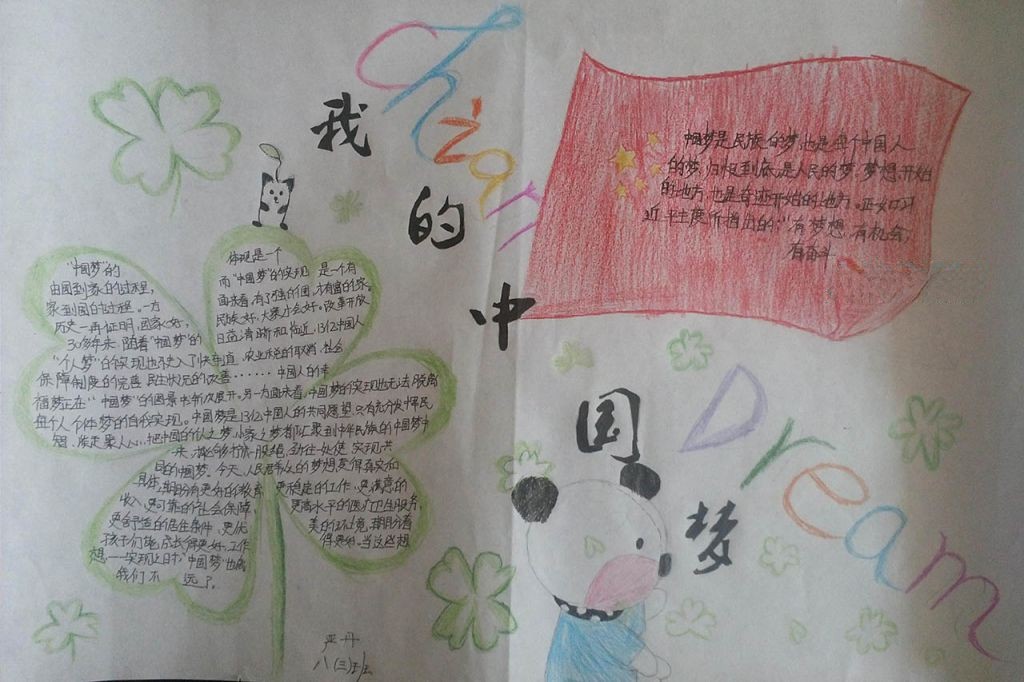 China
我的中国梦
Dream
中国梦是民族的梦,也是每个中国人
的梦.归根到底是人民的梦.梦想开始
的地方.也是奇迹开始的地方.正如习
近平主席所指出的:“有梦想,有机会,
有奋斗
“中国梦”的 体现是一个
由国到家的过程, 而“中国梦”的实现 是一个有
家到国的过程.一方 面来看,有了强的国,才有富的家.
历史一再证明,国家好, 民族好,大家才会好.改革开放
30多年来 随着“中国梦”的 日益清晰和临近,13亿中国人
“个人梦”的实现也驶入了快车道,农业税的取消,社会
保障制度的完善 民生状况的改善……中国人的幸
福梦正在“中国梦”的图景中渐次展开.另一方面来看,中国梦的实现也无法脱离
每个人个体梦的自我实现.中国梦是13亿中国人的共同愿望.只有充分发挥民
智,
把中国的个人之梦,小家之梦都汇聚到中华民族的中国梦中
来,才能够拧成一股绳,劲往一处使 实现共
同的中国梦.今天,人民群众的梦想变得真实而
具体,期盼有更好的教育 更稳定的工作、更满意的
收入、更可靠的社会保障, 更高水平的医疗卫生服务,
更舒适的居住条件、更优 美的环境,期盼着
孩子们能成长得更好、工作 得更好.当这些想
想一一实现之日时“中国梦”也离
我们不远了.
严丹
八(三)班